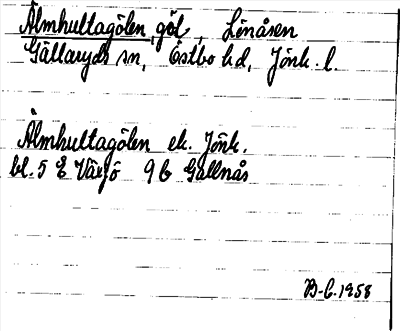 Älmhultagölen, göl, Linåsen
Gällaryds sn, Östbo hd, Jönk. l.
Älmhultagölen ek. Jönk.
bl. 5 E Växjö 9b Gällnås
B-b. 1958